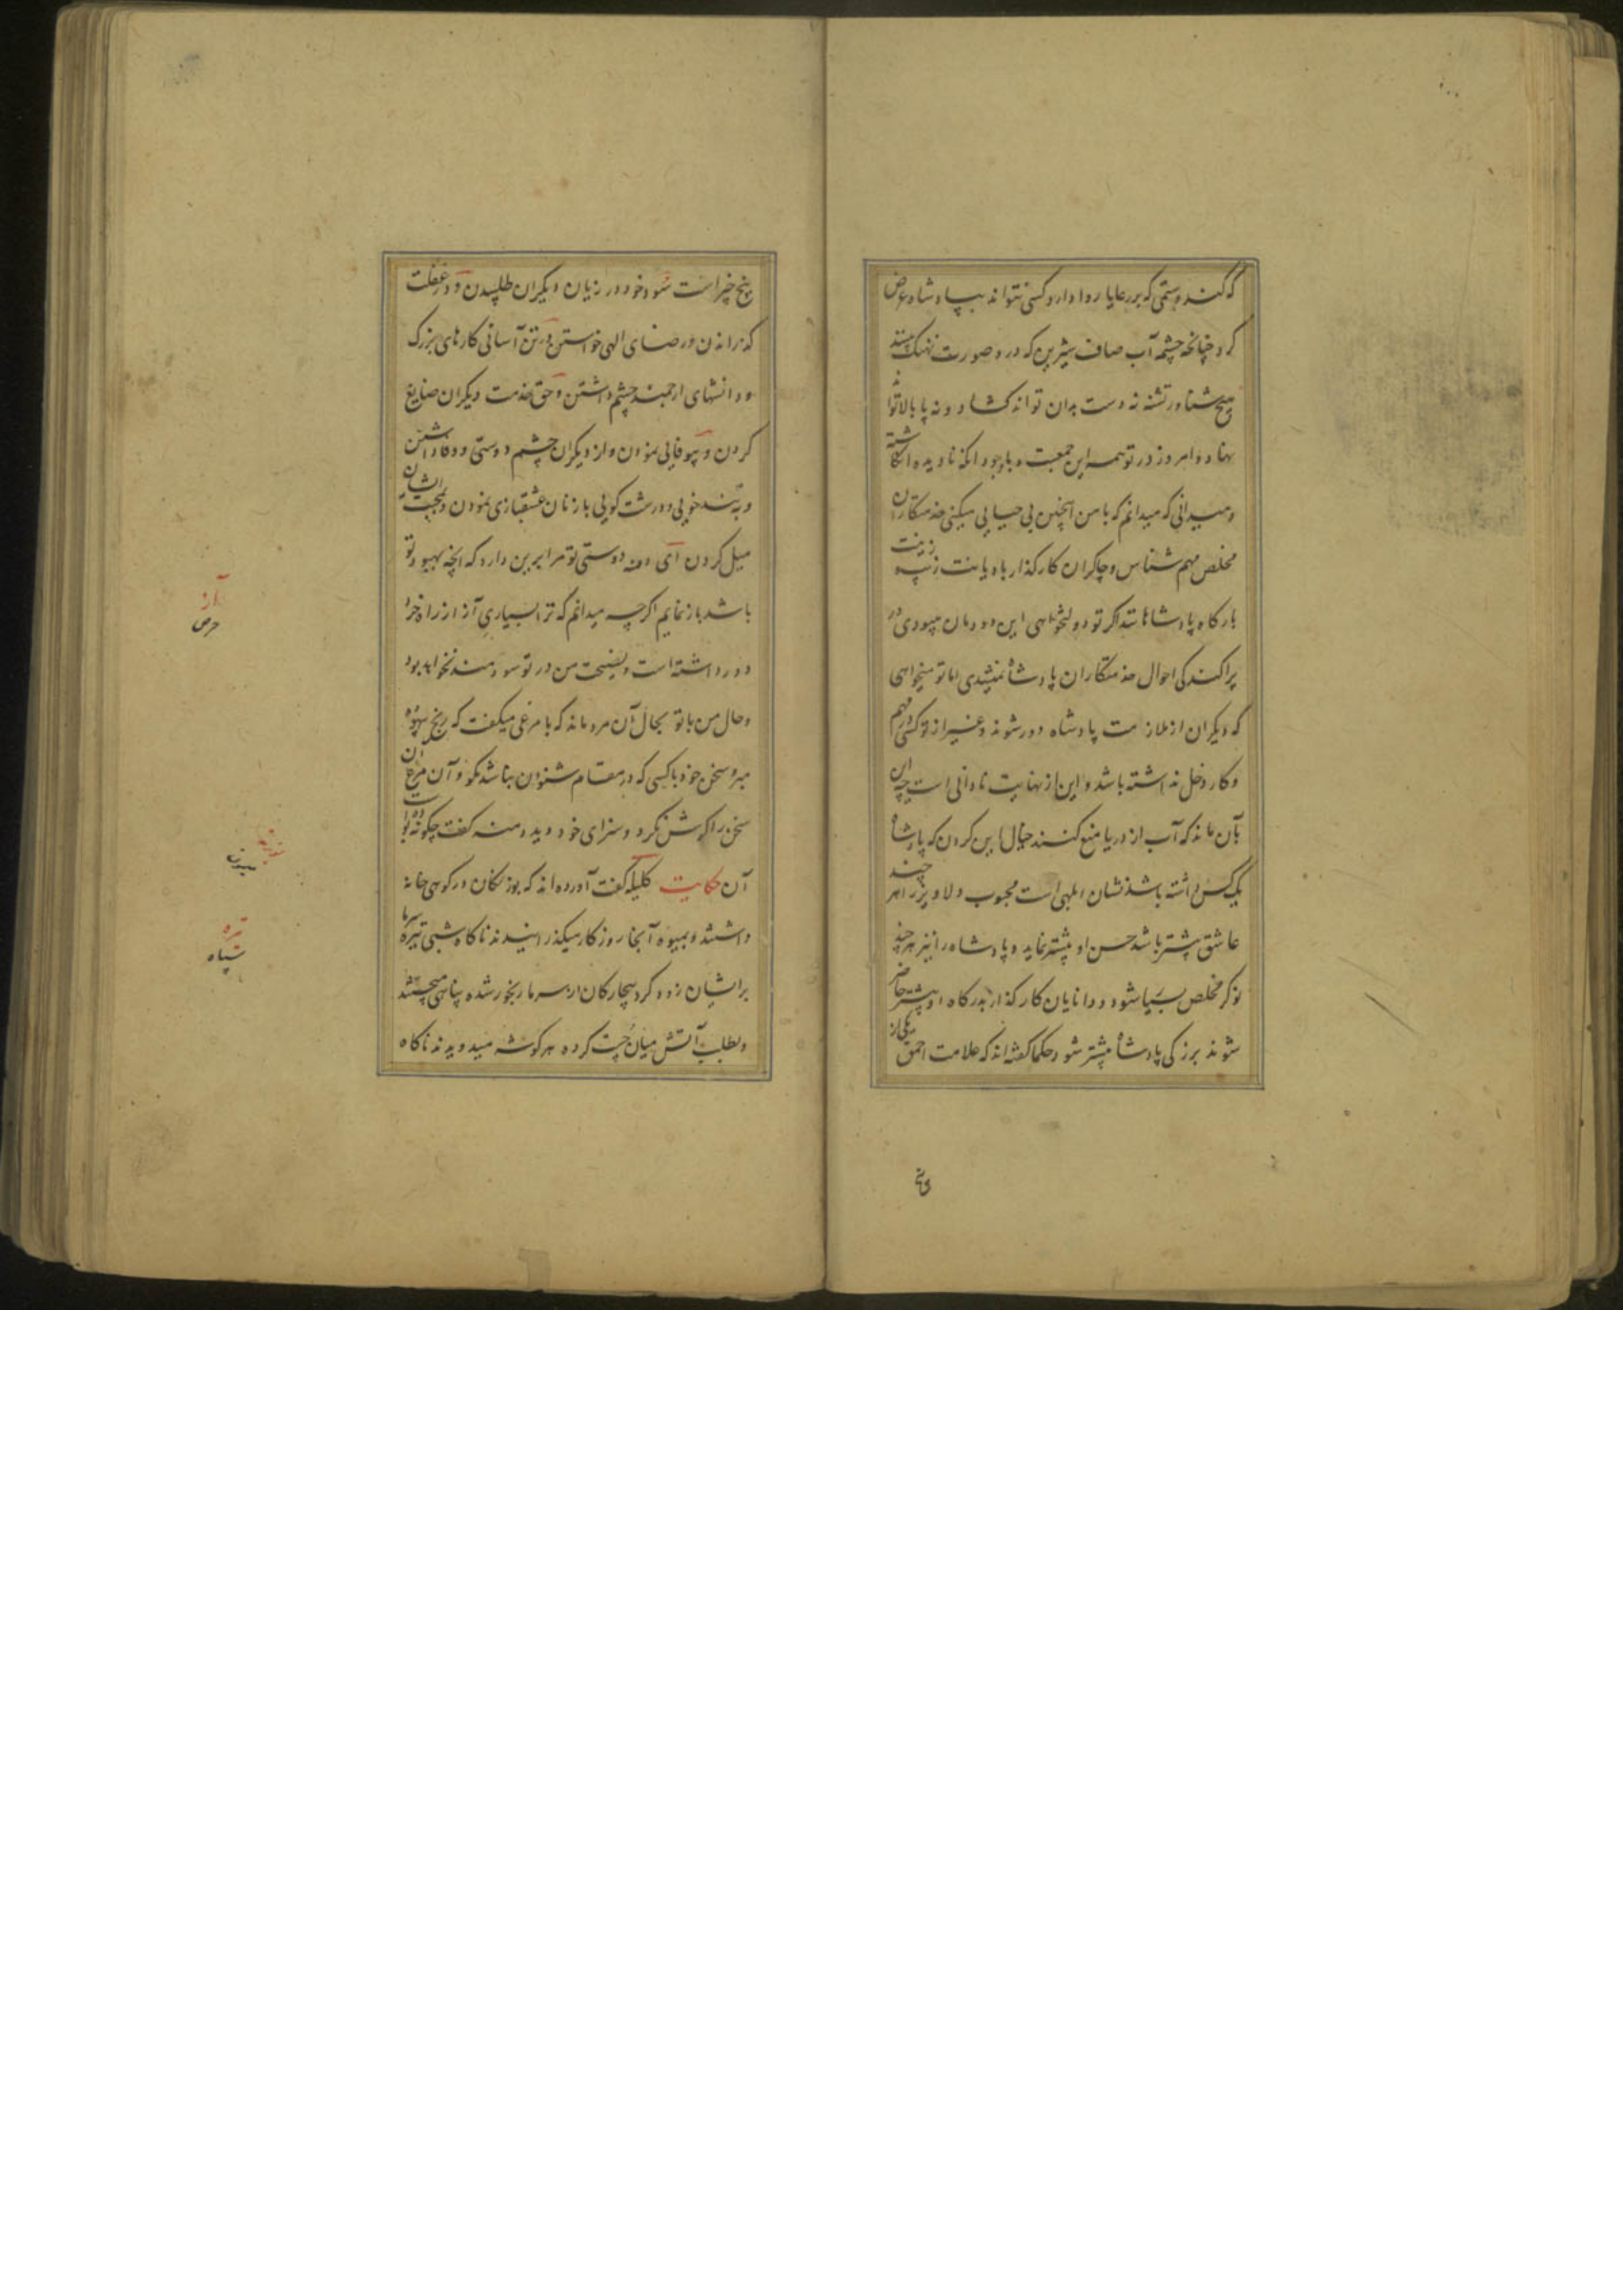 که کند و ستمی که بر رعایا روا دارد و کسی نتواند بپادشاه عرض
کرد چنانچه چشمه آب صاف شیرین که درو صورت نهنگ بینند
هیچ شناور تشنه نه دست بدان تواند کشاد و نه پا بالا توا
نهاد و امروز در تو همه این جمعیت و باوجود آنکه نادیده انکاشته
و میدانی که میدانم که با من اینچنین بی حیایی میکنی خدمتکاران
مخلص مهم شناس و چاکران کارگذار با دیانت زیب و زینت
بارکاه پادشاهانند اکر تو دولتخواهی این دودمان میبودی در
پراکندکی احوال خدمتکاران پادشاه نمیشدی اما تو میخواهی
که دیکران از ملازمت پادشاه دور شوند و غیر از تو کسی در مهم
و کار دخل نداشته باشد و این از نهایت نادانی است چه این
بآن ماند که آب از دریا منع کنند خیال این کردن که پادشاه
یک کس داشته باشد نشان ابلهی است محبوب دلاویز را هر چند
عاشق بیشتر باشد حسن او بیشتر نماید و پادشاه را نیز هر چند
نوکر مخلص بسیار شود و دانایان کارگذار بدرکاه او بیشتر حاضر
شوند بزرکی پادشاه بیشتر شود حکما کفته اند که علامت احمق یکی از
پنج چیز است سود خود در زیان دیکران طلبیدن و در غفلت
گذرانیدن و رضای الهی خواستن و در تن آسانی کارهای بزرک
و دانشهای ارجمند چشم داشتن و حق خدمت دیکران ضایع
کردن و بیوفایی نمودن و از دیکران چشم دوستی و وفا داشتن
و به تندخویی و درشت کویی با زنان عشقبازی نمودن و بمحبت ایشان
میل کردن ای دمنه دوستی تو مرا بر این دارد که آنچه بهبود تو
باشد باز نمایم اکرچه میدانم که ترا بسیاری آز از راه خرد
دور داشته است و نصیحت من در تو سودمند نخواهد بود
و حال من با تو بحال آن مرد ماند که با مرغی میکفت که رنج بیهوده
مبر و سخن خود با کسی که در مقام شنودن نباشد مکو و آن مرغ آن
سخن را کوش نکرد و سزای خود دید دمنه کفت چکونه بوده است
آن حکایت کلیله کفت آورده اند که بوزنکان در کوهی خانه
داشتند و بمیوه آنجا روزکار میکذرانیدند ناکاه شبی تیره سرما
بر ایشان زور کرد بیچارکان از سرما رنجور شده پناهی میجستند
و بطلب آتش میان چست کرده هر کوشه میدویدند ناکاه
آز
حرص
تیره
سیاه